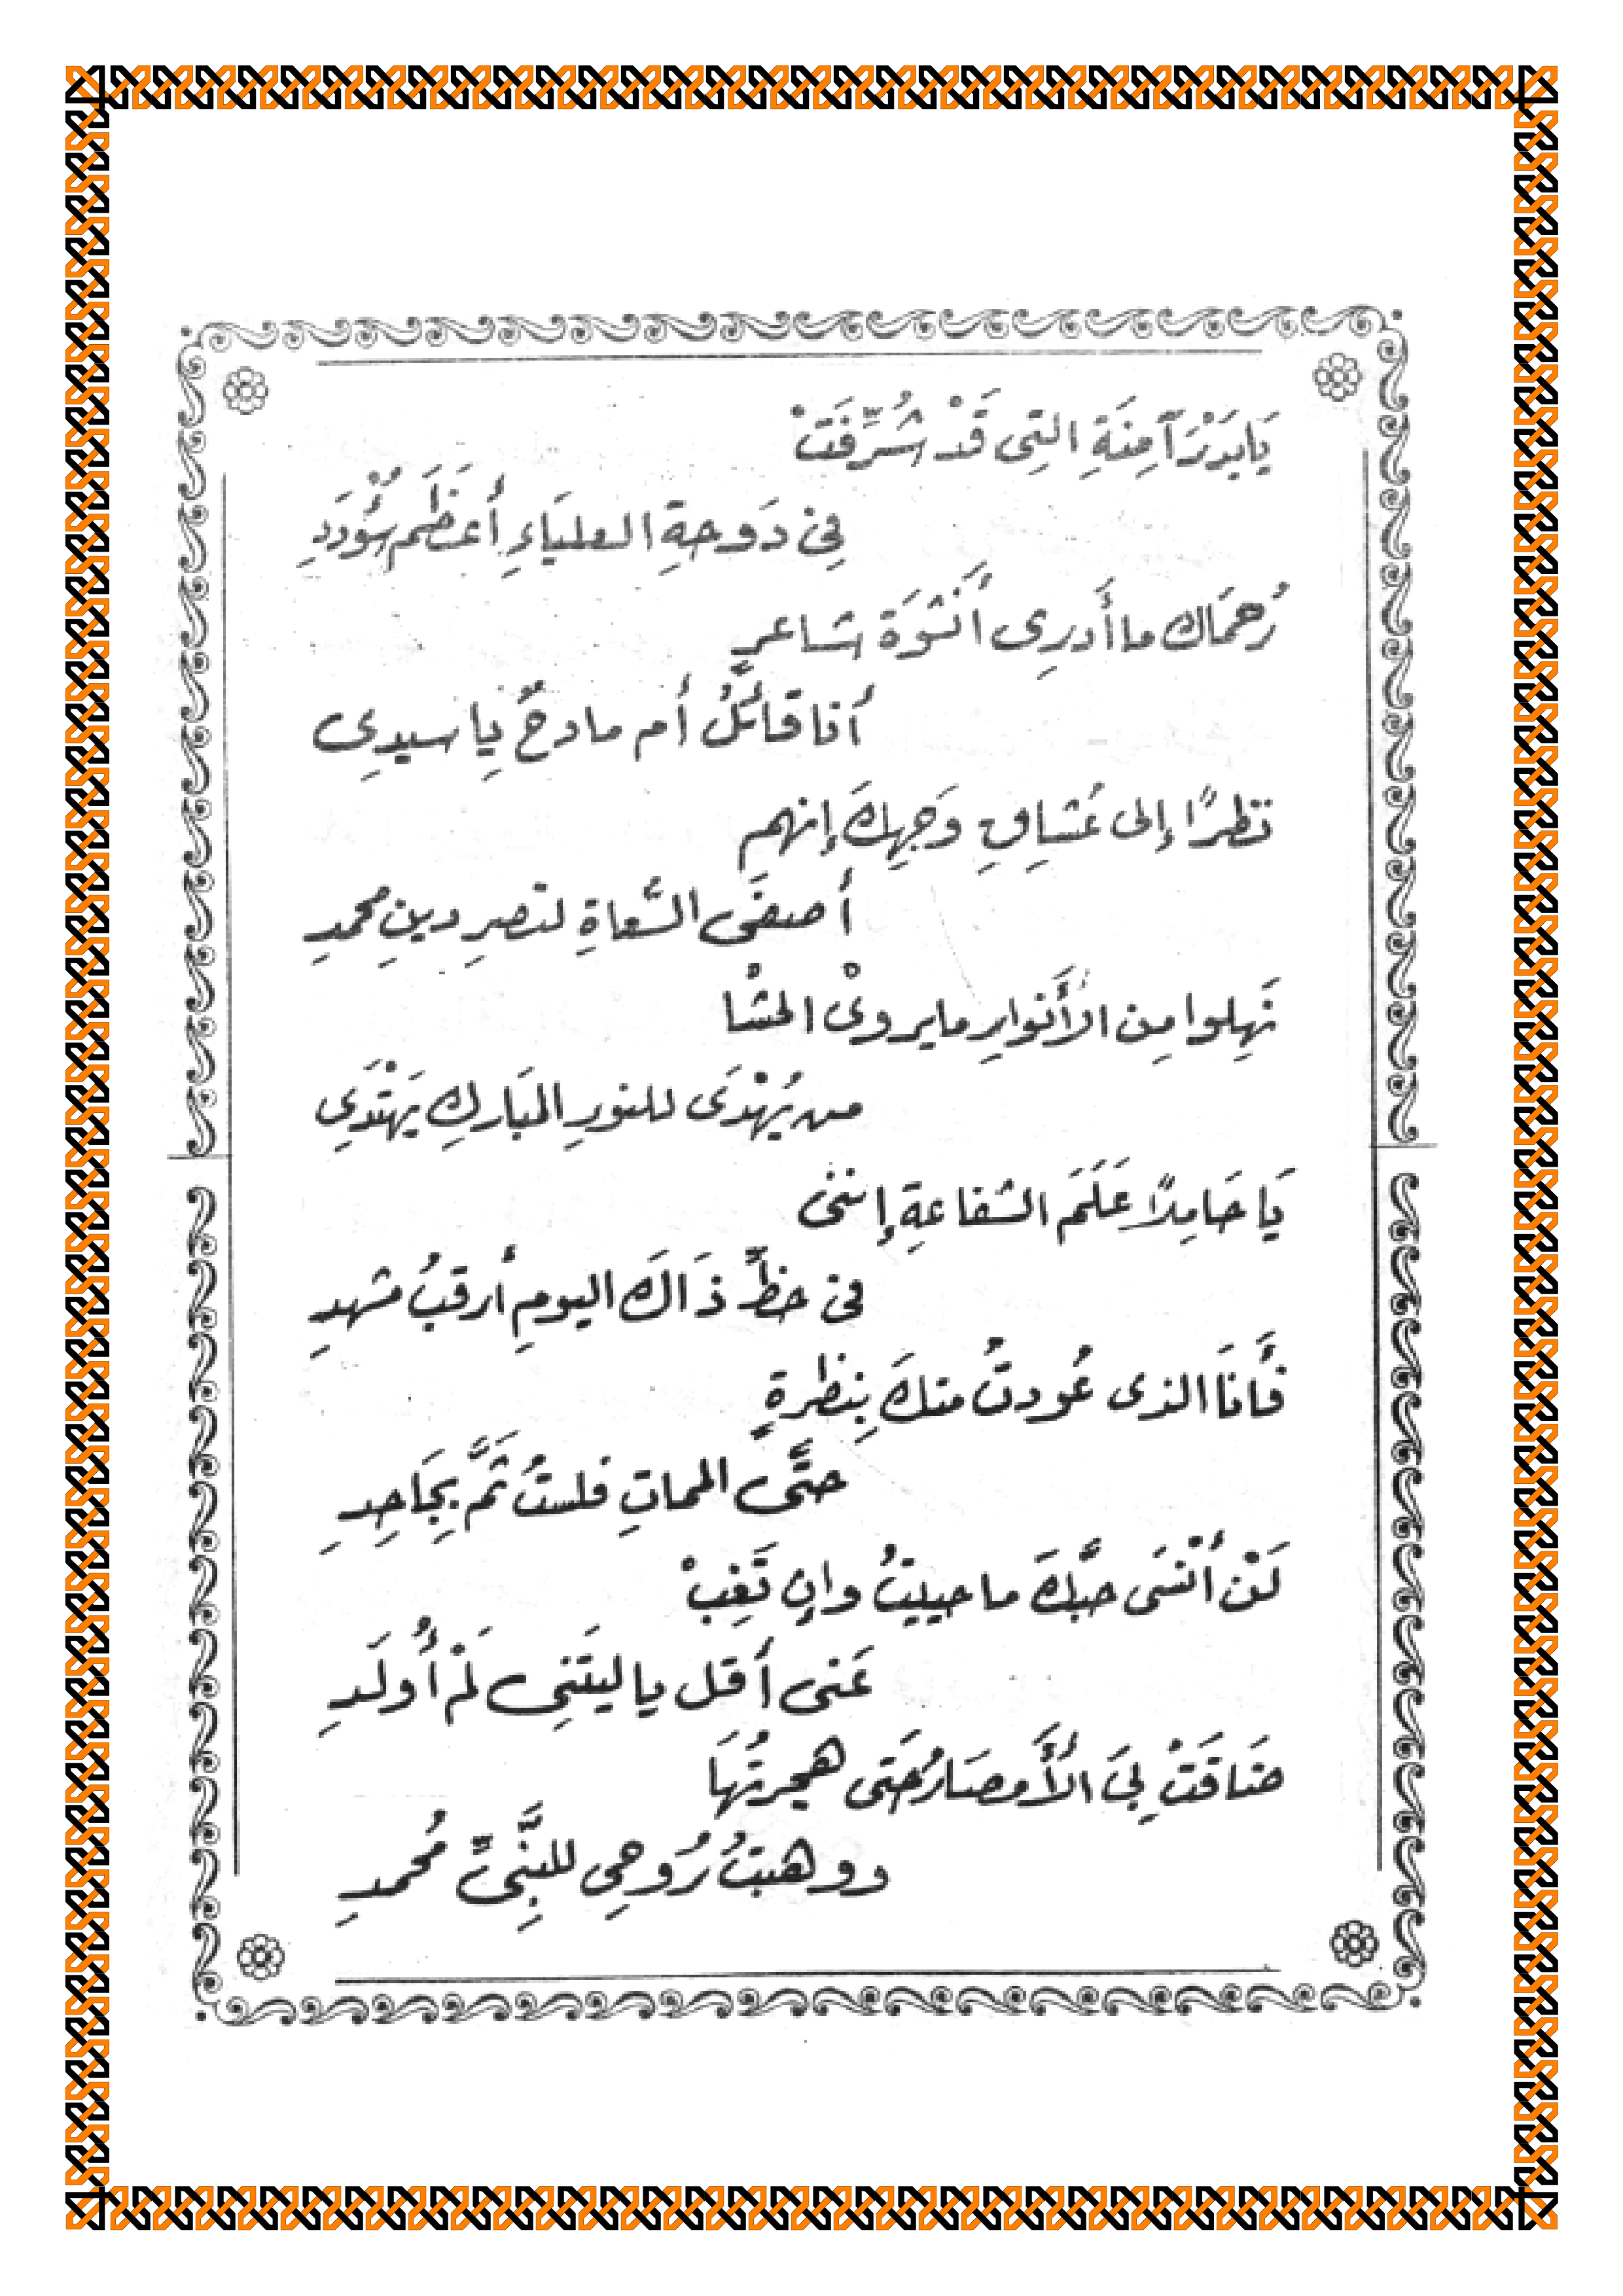 يَابَدْرَ آمِنَةِ التِى قَدْ شُرِّفَتْ
فِى دَوحةِ العليَاءِ أَعظَم سُؤْدَدِ
رُحمَاك ما أَدرِى أَنَشْوَة شاعرٍ
أَنا قائلٌ أَم مادحٌ يا سيدِى
نظرًا إلى عُشاقِ وَجهِكَ إنهم
أَصفَى السُّعاةِ لنصرِ دينِ محمدِ
نَهِلوا مِن الأَنوارِ ما يروىْ الحشْا
من يُهْدَى للنورِ المبَاركِ يَهْتَدِى
يَا حَامِلاً عَلَمَ الشفاعةِ إننى
فى حظِّ ذَاكَ اليومِ أَرقبُ مشهدِ
فَأَنَا الذى عُودتُ منكَ بِنظرةٍ
حتَّى المماتِ فلستُ ثَمَّ بِجَاحِدِ
لَنْ أَنْسَى حبَّكَ ما حييتُ وإن تَغِبْ
عَنى أَقل يا ليتَنِى لَمْ أُولَدِ
ضَاقَتْ بِىَ الأَمصَارُ حَتى هجرتُهَا
ووهبتُ رُوحِى للنَّبِىِّ مُحمدِ